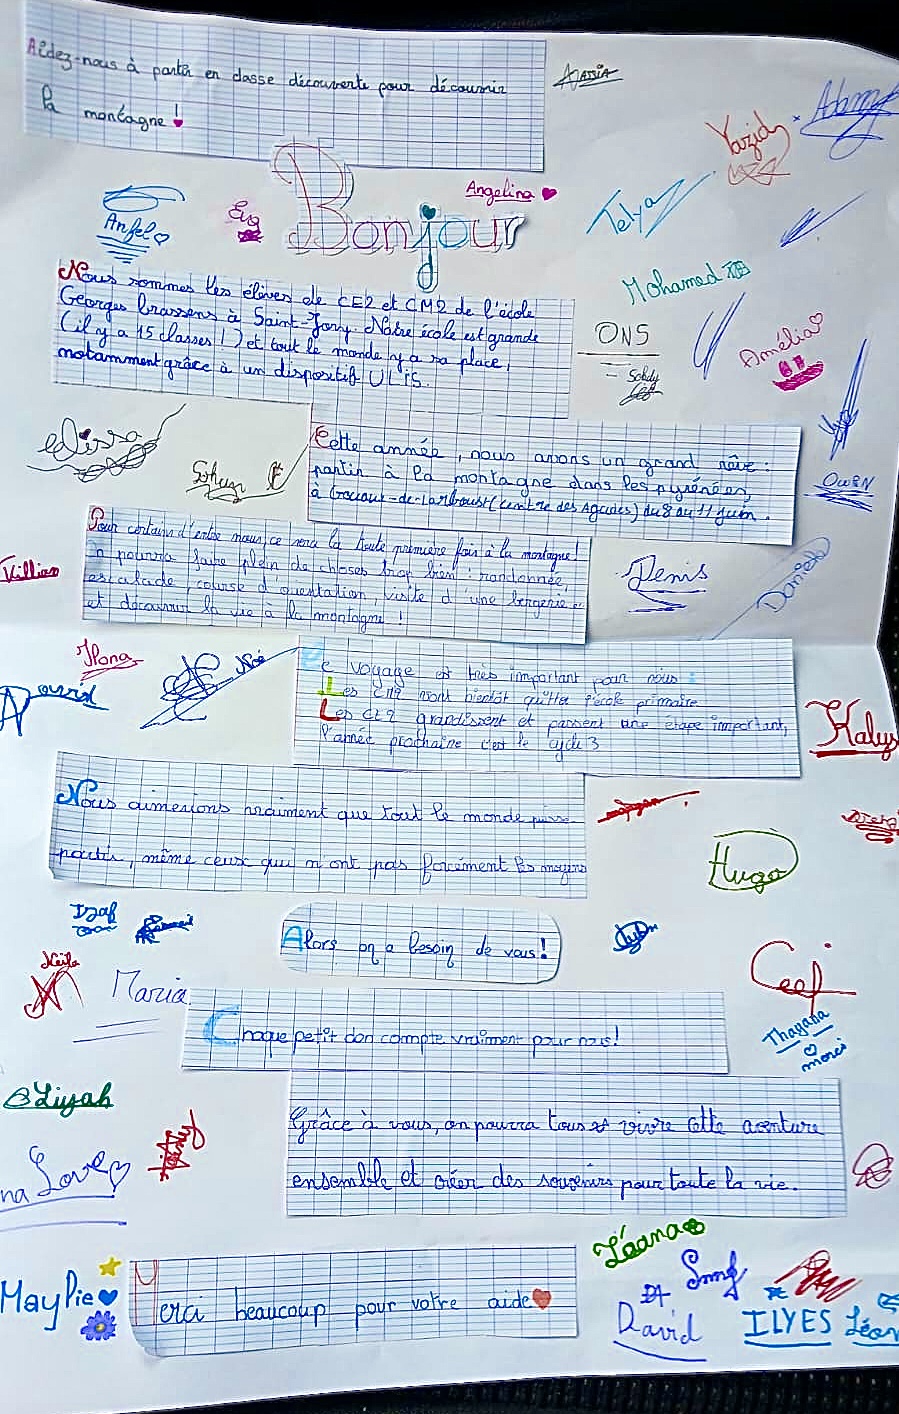 Aidez-nous à partir en classe découverte pour découvrir
la montagne !
Assia
Adam
Yazid
Angelina
Eva
Anfel
Telya
Bonjour
Mohamed
Nous sommes les élèves de CE2 et CM2 de l'école
Georges Brassens à Saint-Jory. Notre école est grande
(il y a 15 classes !) et tout le monde y a sa place,
notamment grâce à un dispositif ULIS.
ONS
Amélia
Cette année, nous avons un grand rêve :
partir à la montagne dans les pyrénées,
à Gouaux-de-Larboust (centre des Agudes) du 8 au 11 juin.
Owen
Pour certains d'entre nous, ce sera la toute première fois à la montagne !
On pourra faire plein de choses trop bien : randonnée,
escalade, course d'orientation, visite d'une bergerie
et découvrir la vie à la montagne !
Villian
Denis
Daniela
Ilona
Noé
David
Ce voyage est très important pour nous :
Les CM2 vont bientôt quitter l'école primaire
Les CE2 grandissent et passent une étape important,
l'année prochaine c'est le cycle 3
Kalys
Nous aimerions vraiment que tout le monde puisse
partir, même ceux qui n'ont pas forcément les moyens
Hugo
Alors on a besoin de vous !
Neila
Maria
Chaque petit don compte vraiment pour nous !
Thayana
merci
Liyah
Grâce à vous, on pourra tous vivre cette aventure
ensemble et créer des souvenirs pour toute la vie.
na Love
Léana
Maylie
Merci beaucoup pour votre aide
David
ILYES
Léan